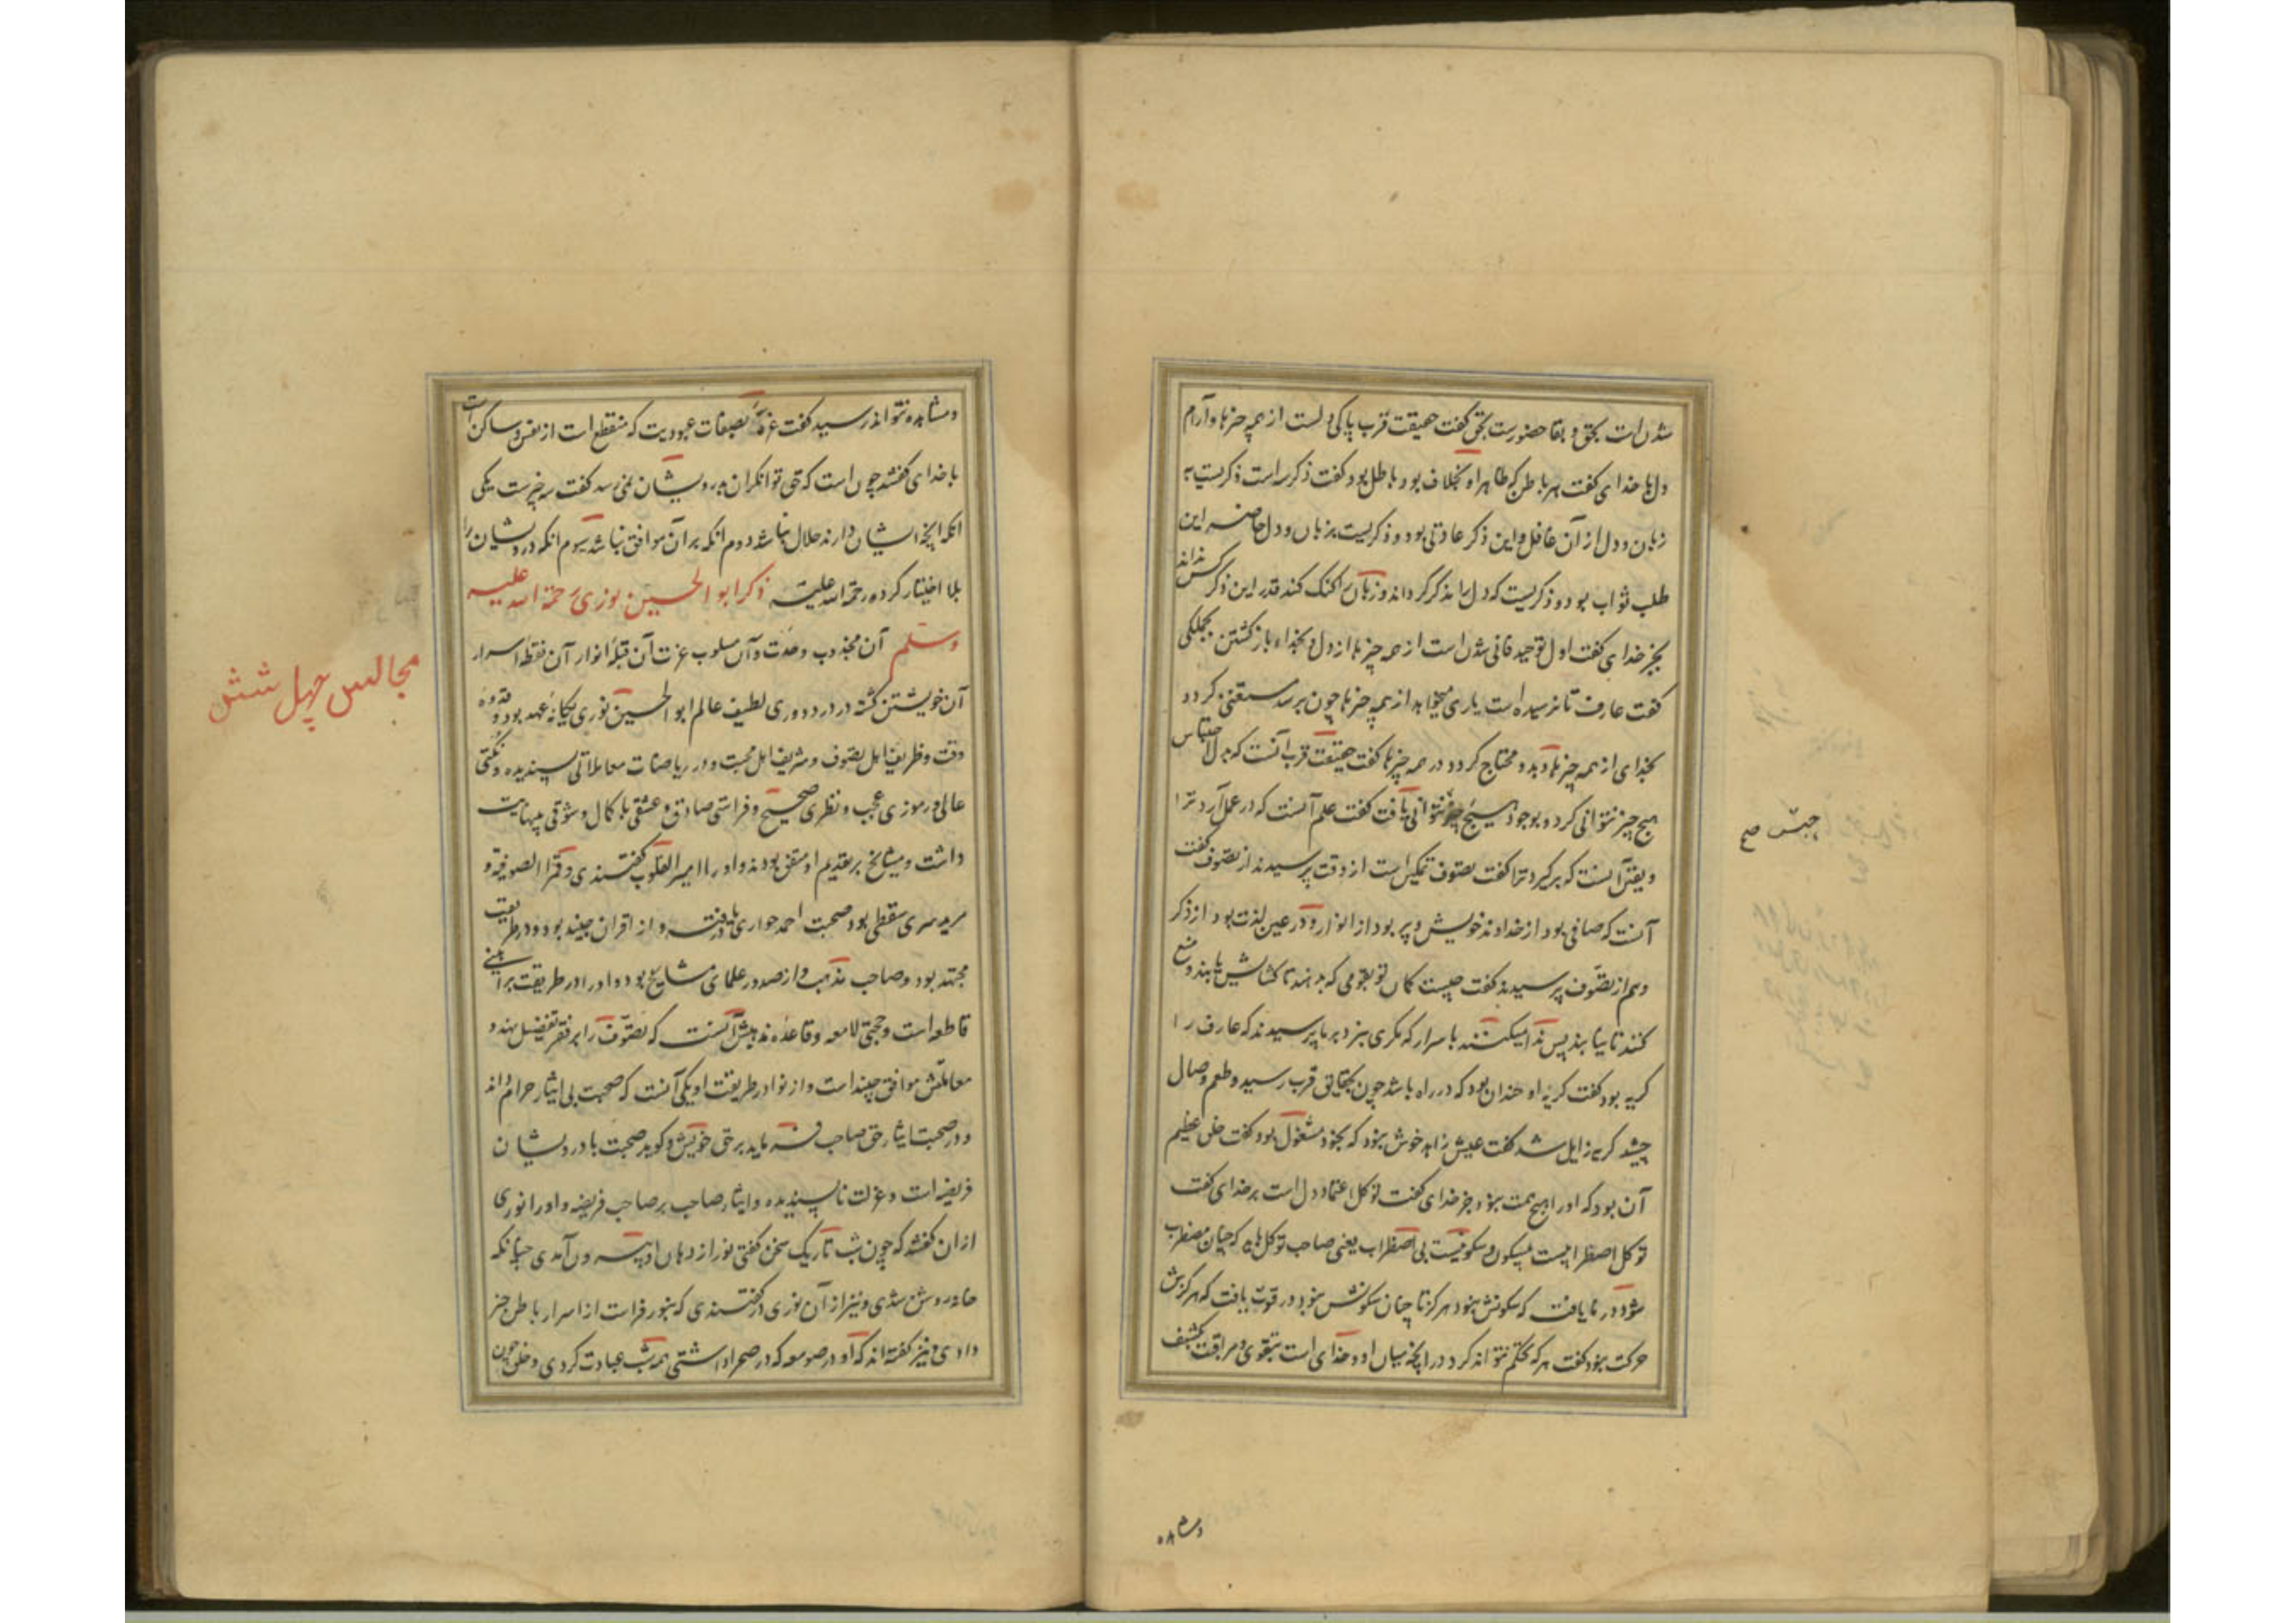 شدن است بحق و بقا حضورست بحق گفت حقیقت قرب پاکی دلست از همه چیزها و آرام
دل با خدای گفت هر باطن که ظاهر او بخلاف بود باطل بود گفت ذکر سه است ذکریست به
زبان و دل از آن غافل و این ذکر عادتی بود و ذکریست بزبان و دل حاضر این
طلب ثواب بود و ذکریست که دل را مذکر گرداند و زبان را گنک کند قدر این ذکر کس نداند
بجز خدای گفت اول توحید فانی شدن است از همه چیزها از دل و بخداء بازگشتن بجملگی
گفت عارف تا نرسیده است یاری میخواهد از همه چیزها چون برسد مستغنی گردد
بخدای از همه چیزها و بدو محتاج گردد در همه چیزها گفت حقیقت قرب آنست که بدل احساس
هیچ چیز نتوانی کرد و بوجود هیچ چیز نتوانی یافت گفت علم آنست که در عمل آرد ترا
و یقین آنست که برگیرد ترا گفت تصوف تمکین است از وقت پرسیدند از تصوف گفت
آنست که صافی بود از خداوند خویش و پر بود از انوار و در عین لذت بود از ذکر
و هم از تصوّف پرسیدند گفت چیست کمان تو بقومی که بدهند تا کشایش یابند و منع
کنند تا نیابند پس ندا میکنند باسرار که بگری بر ما پرسیدند که عارف را
گریه بود گفت گریهٔ او چندان بود که در راه باشد چون بحقایق قرب رسید و طعم وصال
چشید گریه زایل شد گفت عیش زاهد خوش نبود که بخود مشغول بود گفت خلق عظیم
آن بود که او را هیچ همت نبود جز خدای گفت توکل اعتماد دل است بر خدای گفت
توکل اضطرابیست بیسکون و سکونیست بی اضطراب یعنی صاحب توکل باید که چنان مضطرب
شود در نا یافت که سکونش نبود هرگز تا چنان سکونش بود در قوت یافت که هرگزش
حرکت نبود گفت هر که محکم نتواند کرد در آنچه میان او و خدای است بتقوی و مراقبت بکشف
ومشا
و مشاهده نتواند رسید گفت غرّه بصفات عبودیت که منقطع است از نفس و ساکن است
با خدای گفتند چون است که حق توانگران بدرویشان نمیرسد گفت سه چیزست یکی
آنکه آنچه ایشان دارند حلال نباشد دوم آنکه بر آن موافق نباشند سیوم آنکه درویشان را
بلا اختیار کرده رحمة الله علیه ذکر ابو الحسین نوری رحمة الله علیه
وسلم آن مجذوب وحدت و آن مسلوب عزت آن قبلهٔ انوار آن نقطهٔ اسرار
آن خویشتن کشته در درد دوری لطیف عالم ابو الحسین نوری یگانهٔ عهد بود و قدوهٔ
وقت و ظریف اهل تصوف و شریف اهل محبت و در ریاضات معاملاتی پسندیده و نکتی
عالی و رموزی عجب و نظری صحیح و فراستی صادق و عشقی با کمال و شوقی بینهایت
داشت و مشایخ بر تقدیم او متفق بودند و او را امیر القلوب گفتندی و قمر الصوفیه و
مرید سری سقطی بود صحبت احمد حواری یافته و از اقران جنید بود و در طریقت
مجتهد بود و صاحب مذهب و از صدور علمای مشایخ بود و او را در طریقت براهینی
قاطع است و حجتی لامعه و قاعدهٔ مذهبش آنست که تصوّف را بر فقر تفضیل نهد و
معاملتش موافق جنید است و از نوادر طریقت او یکی آنست که صحبت بی ایثار حرام داند
و در صحبت ایثار حق صاحب فرماید بر حق خویش و گوید صحبت با درویشان
فریضه است و عزلت ناپسندیده و ایثار صاحب بر صاحب فریضه و او را نوری
از آن گفتند که چون شب تاریک سخن گفتی نور از دهان او بیرون آمدی چنانکه
خانه روشن شدی و نیز از آن نوری گفتندی که بنور فراست از اسرار باطن خبر
دادی و نیز گفته اند که او را صومعه که در صحرا داشتی همه شب عبادت کردی و خلق چون
مجالس چهل شش